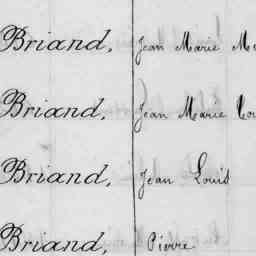 Briand, Jean Marie M
Briand, Jean Marie Lou
Briand, Jean Louis
Briand, Pierre